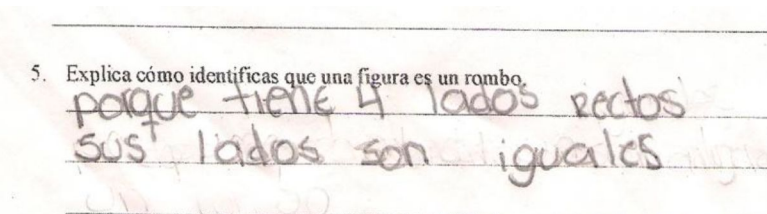 5. Explica cómo identificas que una figura es un rombo.
porque tiene 4 lados rectos
sus lados son iguales